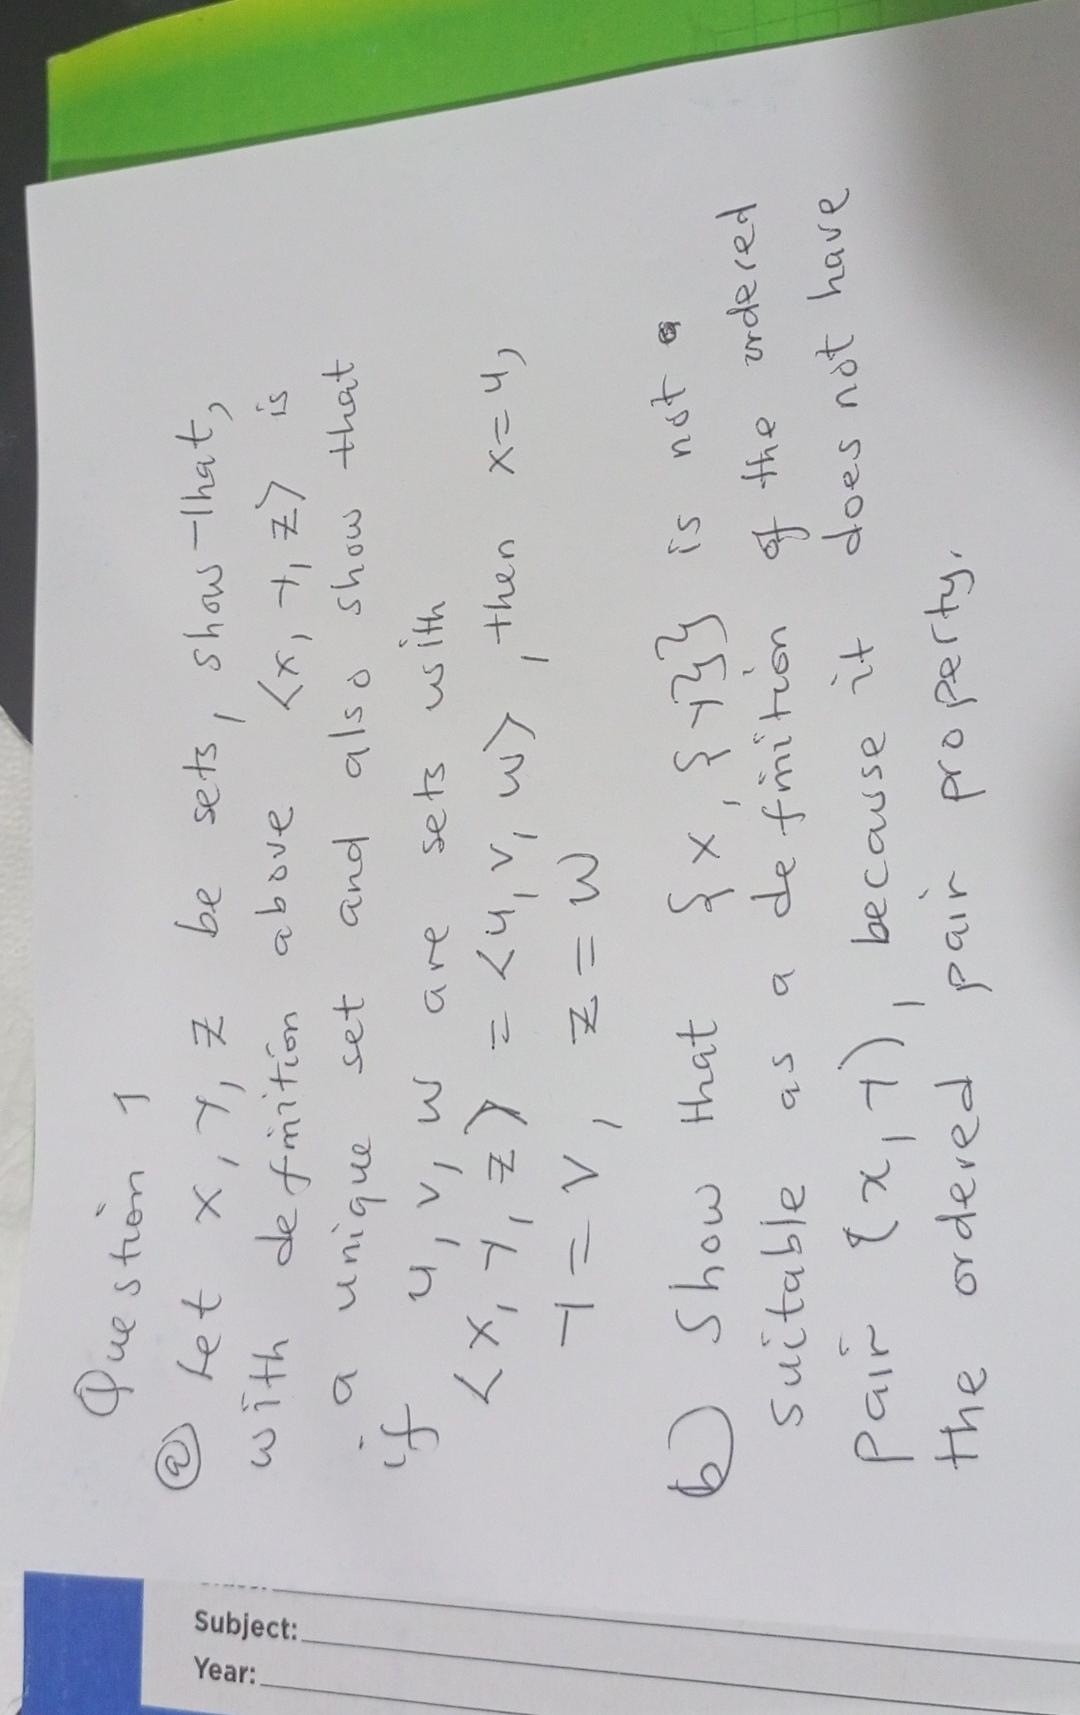 Question 1
(a) Let x, y, z be sets, show that,
with definition above <x, y, z> is
a unique set and also show that
if u, v, w are sets with
<x, y, z> = <u, v, w>, then x = u,
y = v, z = w
b) Show that {x, {y}} is not
suitable as a definition of the ordered
pair (x, y), because it does not have
the ordered pair property.
Subject:
Year: